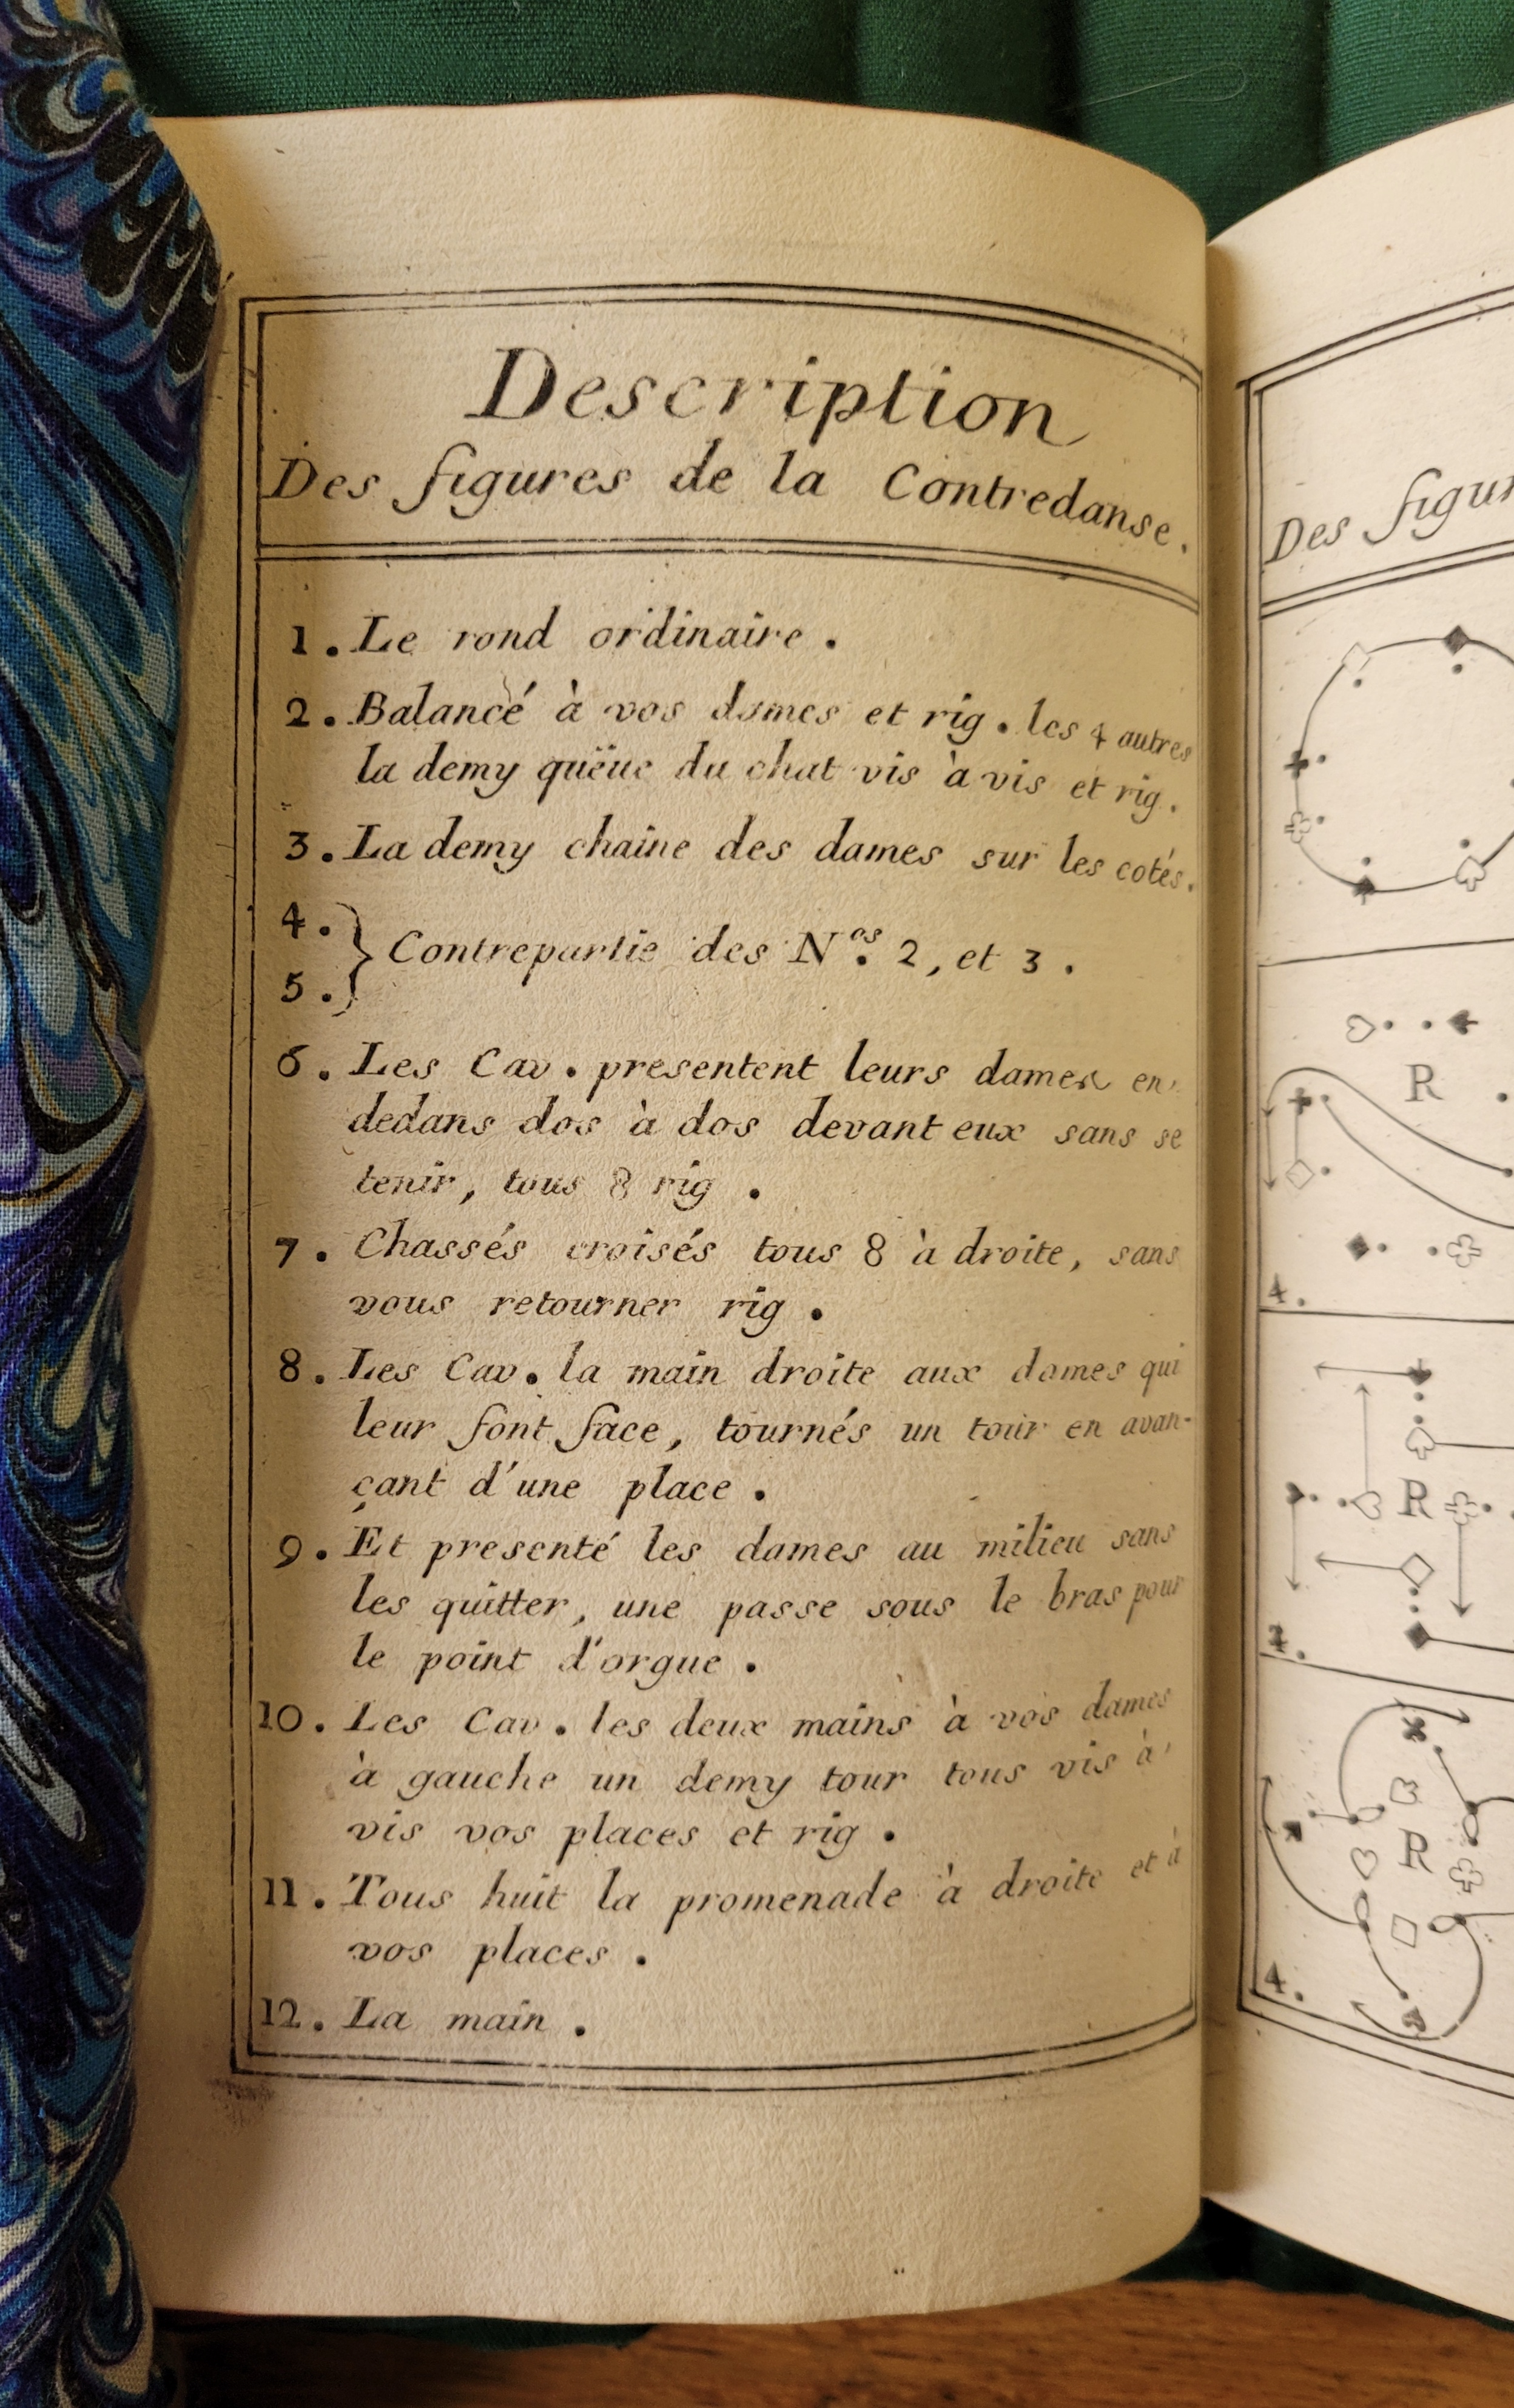 Description
Des figures de la Contredanse.
1. Le rond ordinaire.
2. Balancé à vos dames et rig. les 4 autres
la demy quëue du chat vis à vis et rig.
3. La demy chaine des dames sur les cotés.
4.
5. } Contrepartie des N.os 2, et 3.
6. Les Cav. presentent leurs dames en
dedans dos à dos devant eux sans se
tenir, tous 8 rig.
7. Chassés croisés tous 8 à droite, sans
vous retourner rig.
8. Les Cav. la main droite aux dames qui
leur font face, tournés un tour en avan-
çant d'une place.
9. Et presenté les dames au milieu sans
les quitter, une passe sous le bras pour
le point d'orgue.
10. Les Cav. les deux mains à vos dames
à gauche un demy tour tous vis à
vis vos places et rig.
11. Tous huit la promenade à droite et à
vos places.
12. La main.
Des figur
R
4.
R
R
4.